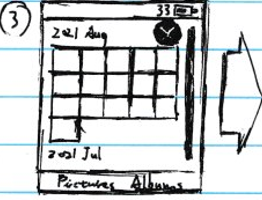 ③
33
2021 Aug
2021 Jul
Pictures Albums